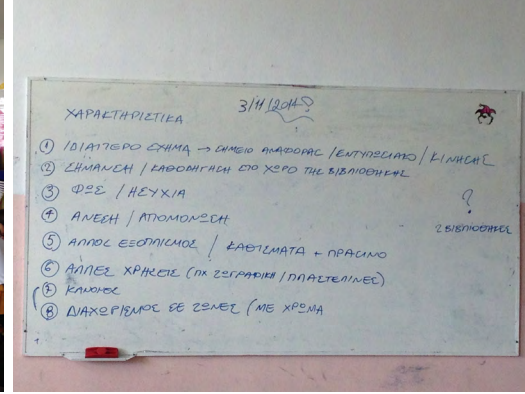 3/11/2014
ΧΑΡΑΚΤΗΡΙΣΤΙΚΑ
① ΙΔΙΑΙΤΕΡΟ ΣΧΗΜΑ → ΣΗΜΕΙΟ ΑΝΑΦΟΡΑΣ / ΕΝΤΥΠΩΣΙΑΚΟ / ΚΙΝΗΣΗΣ
② ΣΗΜΑΝΣΗ / ΚΑΘΟΔΗΓΗΣΗ ΣΤΟ ΧΩΡΟ ΤΗΣ ΒΙΒΛΙΟΘΗΚΗΣ
③ ΦΩΣ / ΗΣΥΧΙΑ
?
④ ΑΝΕΣΗ / ΑΠΟΜΟΝΩΣΗ
2 ΒΙΒΛΙΟΘΗΚΕΣ
⑤ ΑΛΛΟΣ ΕΞΟΠΛΙΣΜΟΣ / ΚΑΘΙΣΜΑΤΑ + ΠΡΑΣΙΝΟ
⑥ ΑΛΛΕΣ ΧΡΗΣΕΙΣ (ΠΧ ΖΩΓΡΑΦΙΚΗ / ΠΛΑΣΤΕΛΙΝΕΣ)
⑦ ΚΑΝΟΝΕΣ
⑧ ΔΙΑΧΩΡΙΣΜΟΣ ΣΕ ΖΩΝΕΣ (ΜΕ ΧΡΩΜΑ